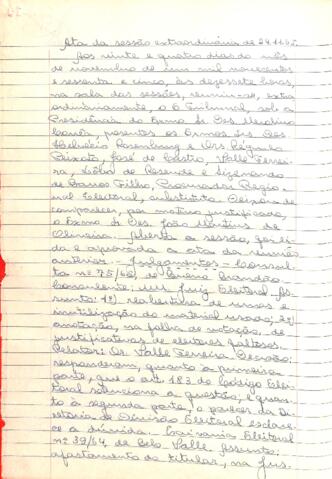 Ata da sessão extraordinária de 24.11.65.
Aos vinte e quatro dias do mês
de novembro de um mil novecentos
e sessenta e cinco, às dezessete horas,
na sala das sessões, reuniu-se, extra
ordinariamente, o E. Tribunal, sob a
Presidência do Exmo. Sr. Des.
presentes os Exmos. Srs. Des.
Helvécio Rosenburg e Drs. Régulo
Peixoto, José de Castro, Valle Ferrei-
ra, Lôbo de Resende e
de Barros Filho, Procurador Regio-
nal Eleitoral, substituto. Deixou de
comparecer, por motivo justificado,
o Exmo. Sr. Des. João Martins de
Oliveira. Aberta a sessão, foi li-
da e aprovada a ata da reunião
anterior. - Julgamentos - Consul-
ta nº 75/65, de
Consulente: MM. Juiz Eleitoral. As-
sunto: 1º) reabertura de urnas e
inutilização do material usado; 2º)
anotação, na fôlha de votação, de
justificativas de eleitores faltosos.
Relator: Dr. Valle Ferreira. Decisão:
responderam, quanto à primeira
parte, que o art. 183 do Código Elei-
toral soluciona a questão, e quan-
to à segunda parte, o parecer da Di-
retoria de Divisão Eleitoral esclare-
ce a dúvida. - Escrivania Eleitoral
nº 39/64, de Belo Valle. Assunto:
afastamento do titular, na Jus-